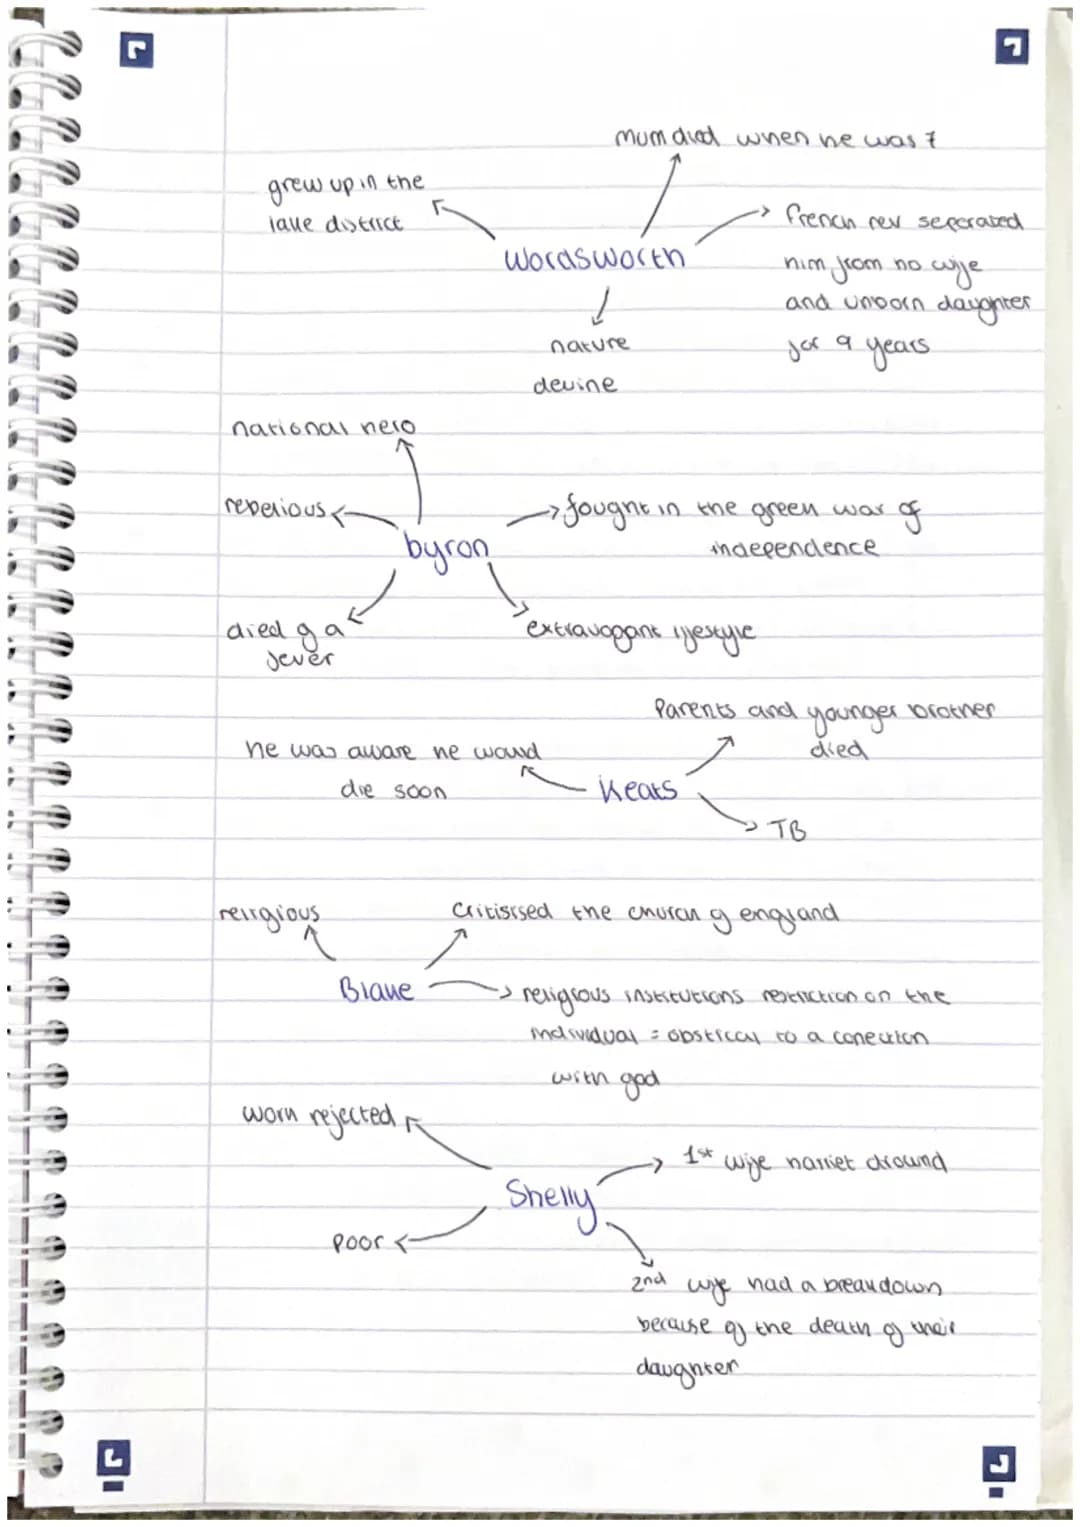 mum died when he was 7
grew up in the
lake district
french rev seperated
Wordsworth
him from his wife
and unborn daughter
for 9 years
nature
devine
national hero
rebelious
fought in the green war of
independence
byron
died of a
fever
extravagant lifestyle
Parents and younger brother
died
he was aware he would
die soon
Keats
TB
religious
Critisised the church of england
Blake
religious institutions restriction on the
individual = obstical to a conection
with god
work rejected
1st wife harriet dround
Shelly
poor
2nd wife had a breakdown
because of the death of their
daughter